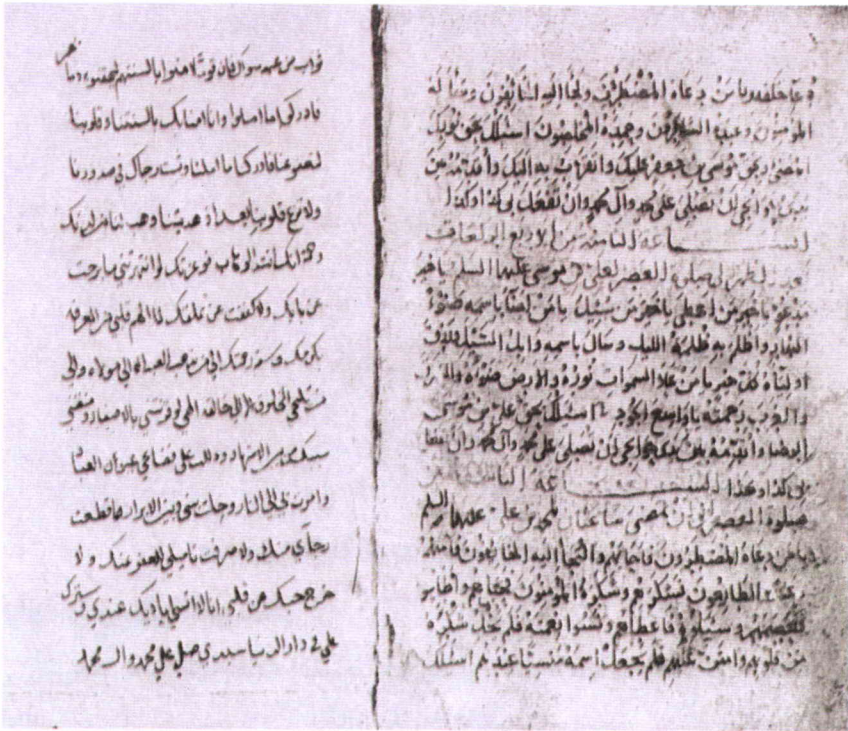 دعا خلقه ويا من دعاه المضطرون ولجا اليه الخائفون
المؤمنون وعبده الشاكرون وحمده المخلصون اسئلك بحق نورك
المضئ وبحق موسى بن جعفر عليك واتقرب به اليك واقدمه بين
يدي حوائجي ان تصلي على محمد وآل محمد وان تفعل بي كذا وكذا
الساعة الثامنة من الاربع الركعات
الظهر الى صلوة العصر لعلي بن موسى عليهما السلم يا خير
مدعو يا خير من اعطى يا خير من سئل يا من اضاء باسمه ضوء
النهار واظلم به ظلمة الليل وسال باسمه وابل السيل
اولياءه كل خير يا من علا السموات نوره والارض ضوءه والشرق
والغرب رحمته يا واسع الجود اسئلك بحق علي بن موسى
الرضا واقدمه بين يدي حوائجي ان تصلي على محمد وآل محمد وان تفعل
بي كذا وكذا الساعة التاسعة من
صلوة العصر الى ان تمضي ساعتان لمحمد بن علي عليهما السلم
يا من دعاه المضطرون فاجابهم والتجأ اليه الخائفون فامنهم
وعبده الطائعون فشكرهم وشكره المؤمنون فحباهم واطاعوه
فعصمهم وسئلوه فاعطاهم ونسوا نعمته فلم يخل شكره
من قلوبهم وامتن عليهم فلم يجعل اسمه منسيا عندهم اسئلك
ثواب من عبد سواك فان قوما امنوا بالسنتهم ليحقنوا به دماهم
فادركوا ما املوا وانا امنا بك بالسنتنا وقلوبنا
لتعفو عنا فادركنا ما املنا وثبت رجاك في صدورنا
ولا تزغ قلوبنا بعد اذ هديتنا وهب لنا من لدنك
رحمة انك انت الوهاب فوعزتك لو انتهرتني ما برحت
عن بابك ولا كففت عن تملقك لما الهم قلبي من المعرفة
بكرمك وسعة رحمتك الى من يذهب العبد الا الى مولاه والى
من يلتجي المخلوق الا الى خالقه الهي لو قرنتني بالاصفاد ومنعتني
سيبك من بين الاشهاد ودللت على فضايحي عيون العباد
وامرت بي الى النار وحلت بيني وبين الابرار ما قطعت
رجاي منك ولا صرفت تاميلي للعفو عنك ولا
خرج حبك من قلبي انا لا انسى اياديك عندي وسترك
علي في دار الدنيا سيدي صل على محمد وال محمد